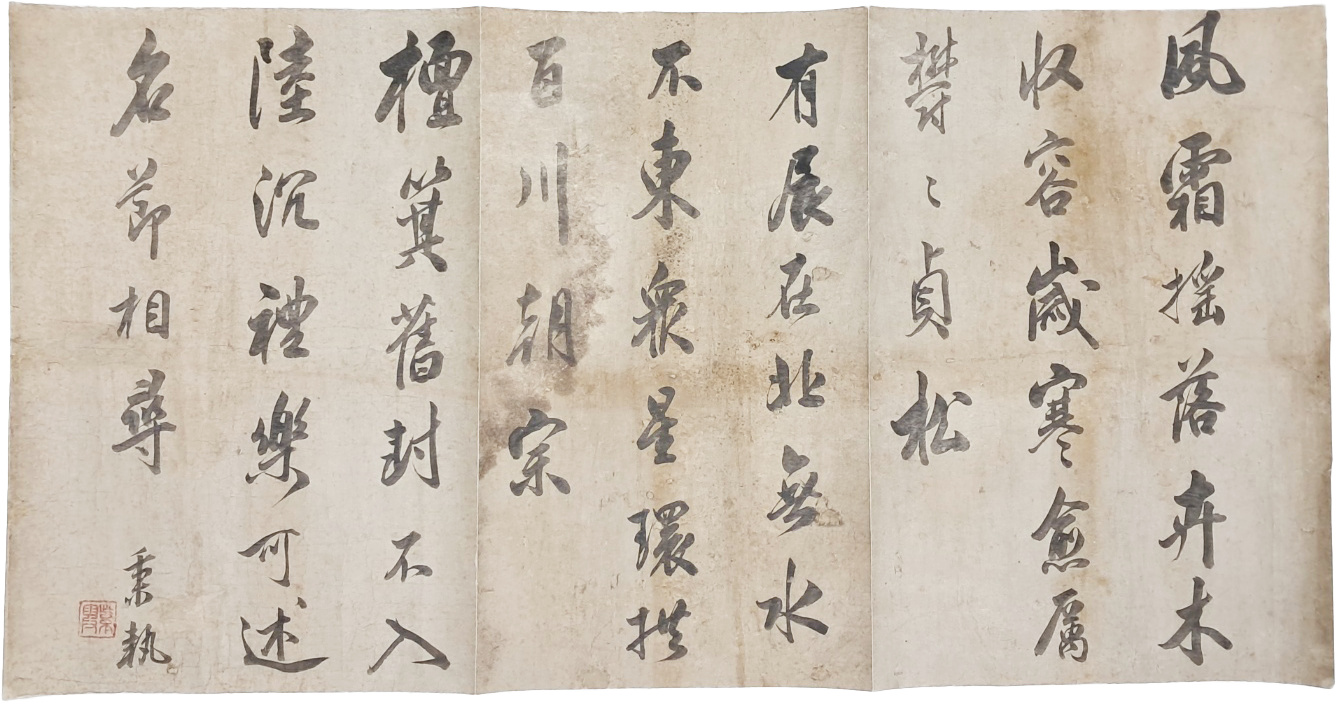 風霜搖落卉木
收容歲寒愈厲
欝〻貞松
有辰在北無水
不東衆星環拱
百川朝宗
檀箕舊封不入
陸沉禮樂可述
名節相尋
秉執